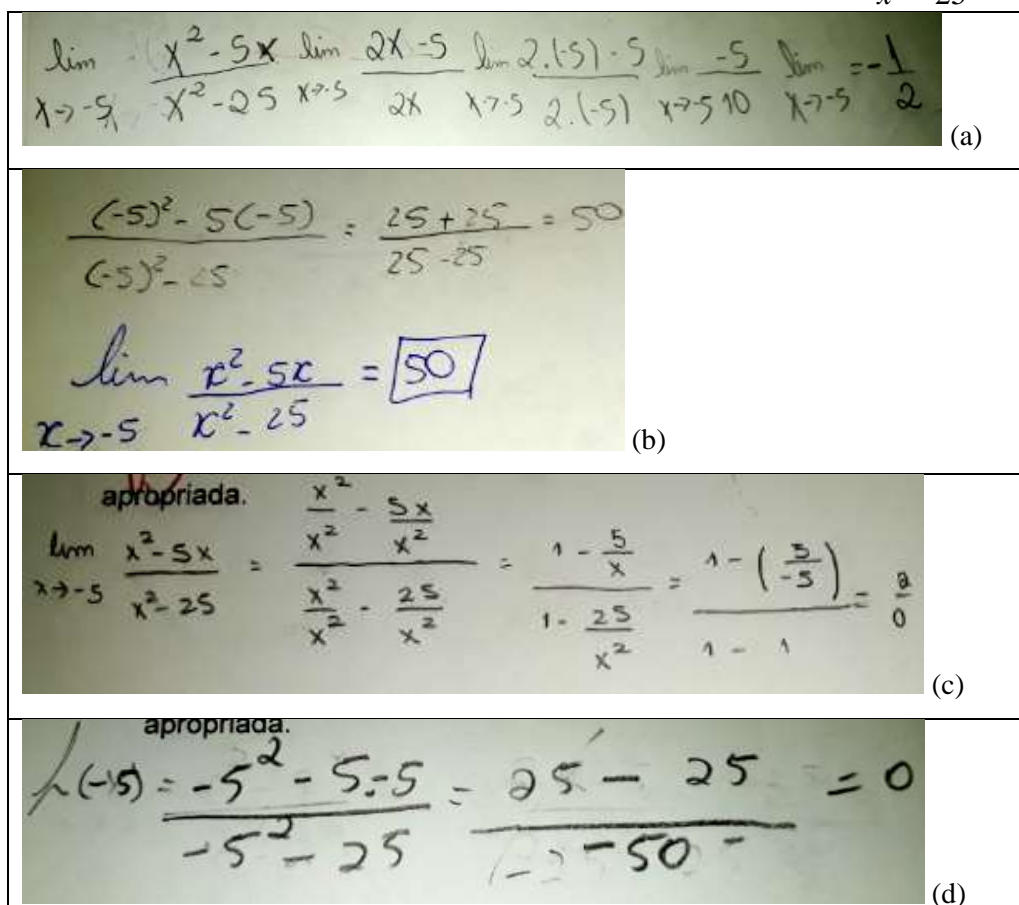 x² - 25
lim x→-5 (x² - 5x)/(x² - 25) lim x→-5 (2x - 5)/(2x) lim x→-5 (2.(-5) - 5)/(2.(-5)) lim x→-5 -5/10 lim x→-5 = -1/2
(a)
((-5)² - 5(-5))/((-5)² - 25) = (25 + 25)/(25 - 25) = 50
lim x→-5 (x² - 5x)/(x² - 25) = 50
(b)
apropriada.
lim x→-5 (x² - 5x)/(x² - 25) = (x²/x² - 5x/x²)/(x²/x² - 25/x²) = (1 - 5/x)/(1 - 25/x²) = (1 - (5/-5))/(1 - 1) = 2/0
(c)
apropriada.
(-5) = (-5² - 5.-5)/(-5² - 25) = (25 - 25)/(-50) = 0
(d)